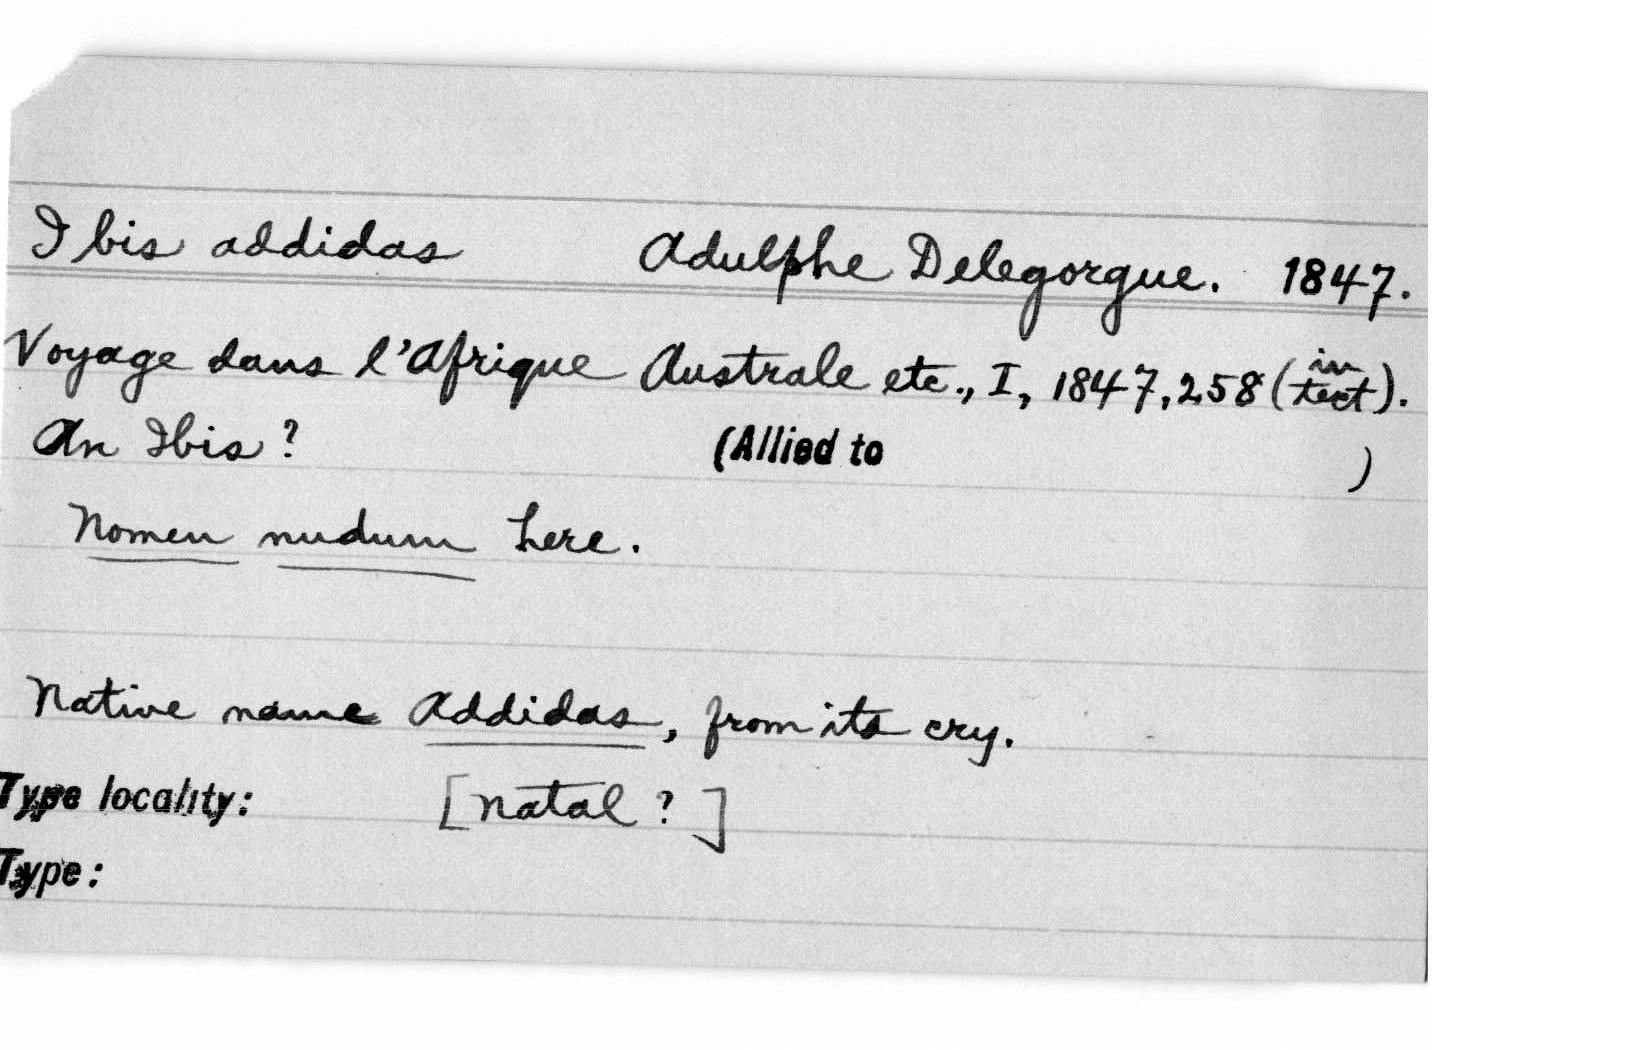 Ibis addidas Adulphe Delegorgue. 1847.
Voyage dans l'Afrique Australe etc., I, 1847, 258 (in text).
An Ibis? (Allied to )
Nomen nudum here.
Native name Addidas, from its cry.
Type locality: [Natal?]
Type: